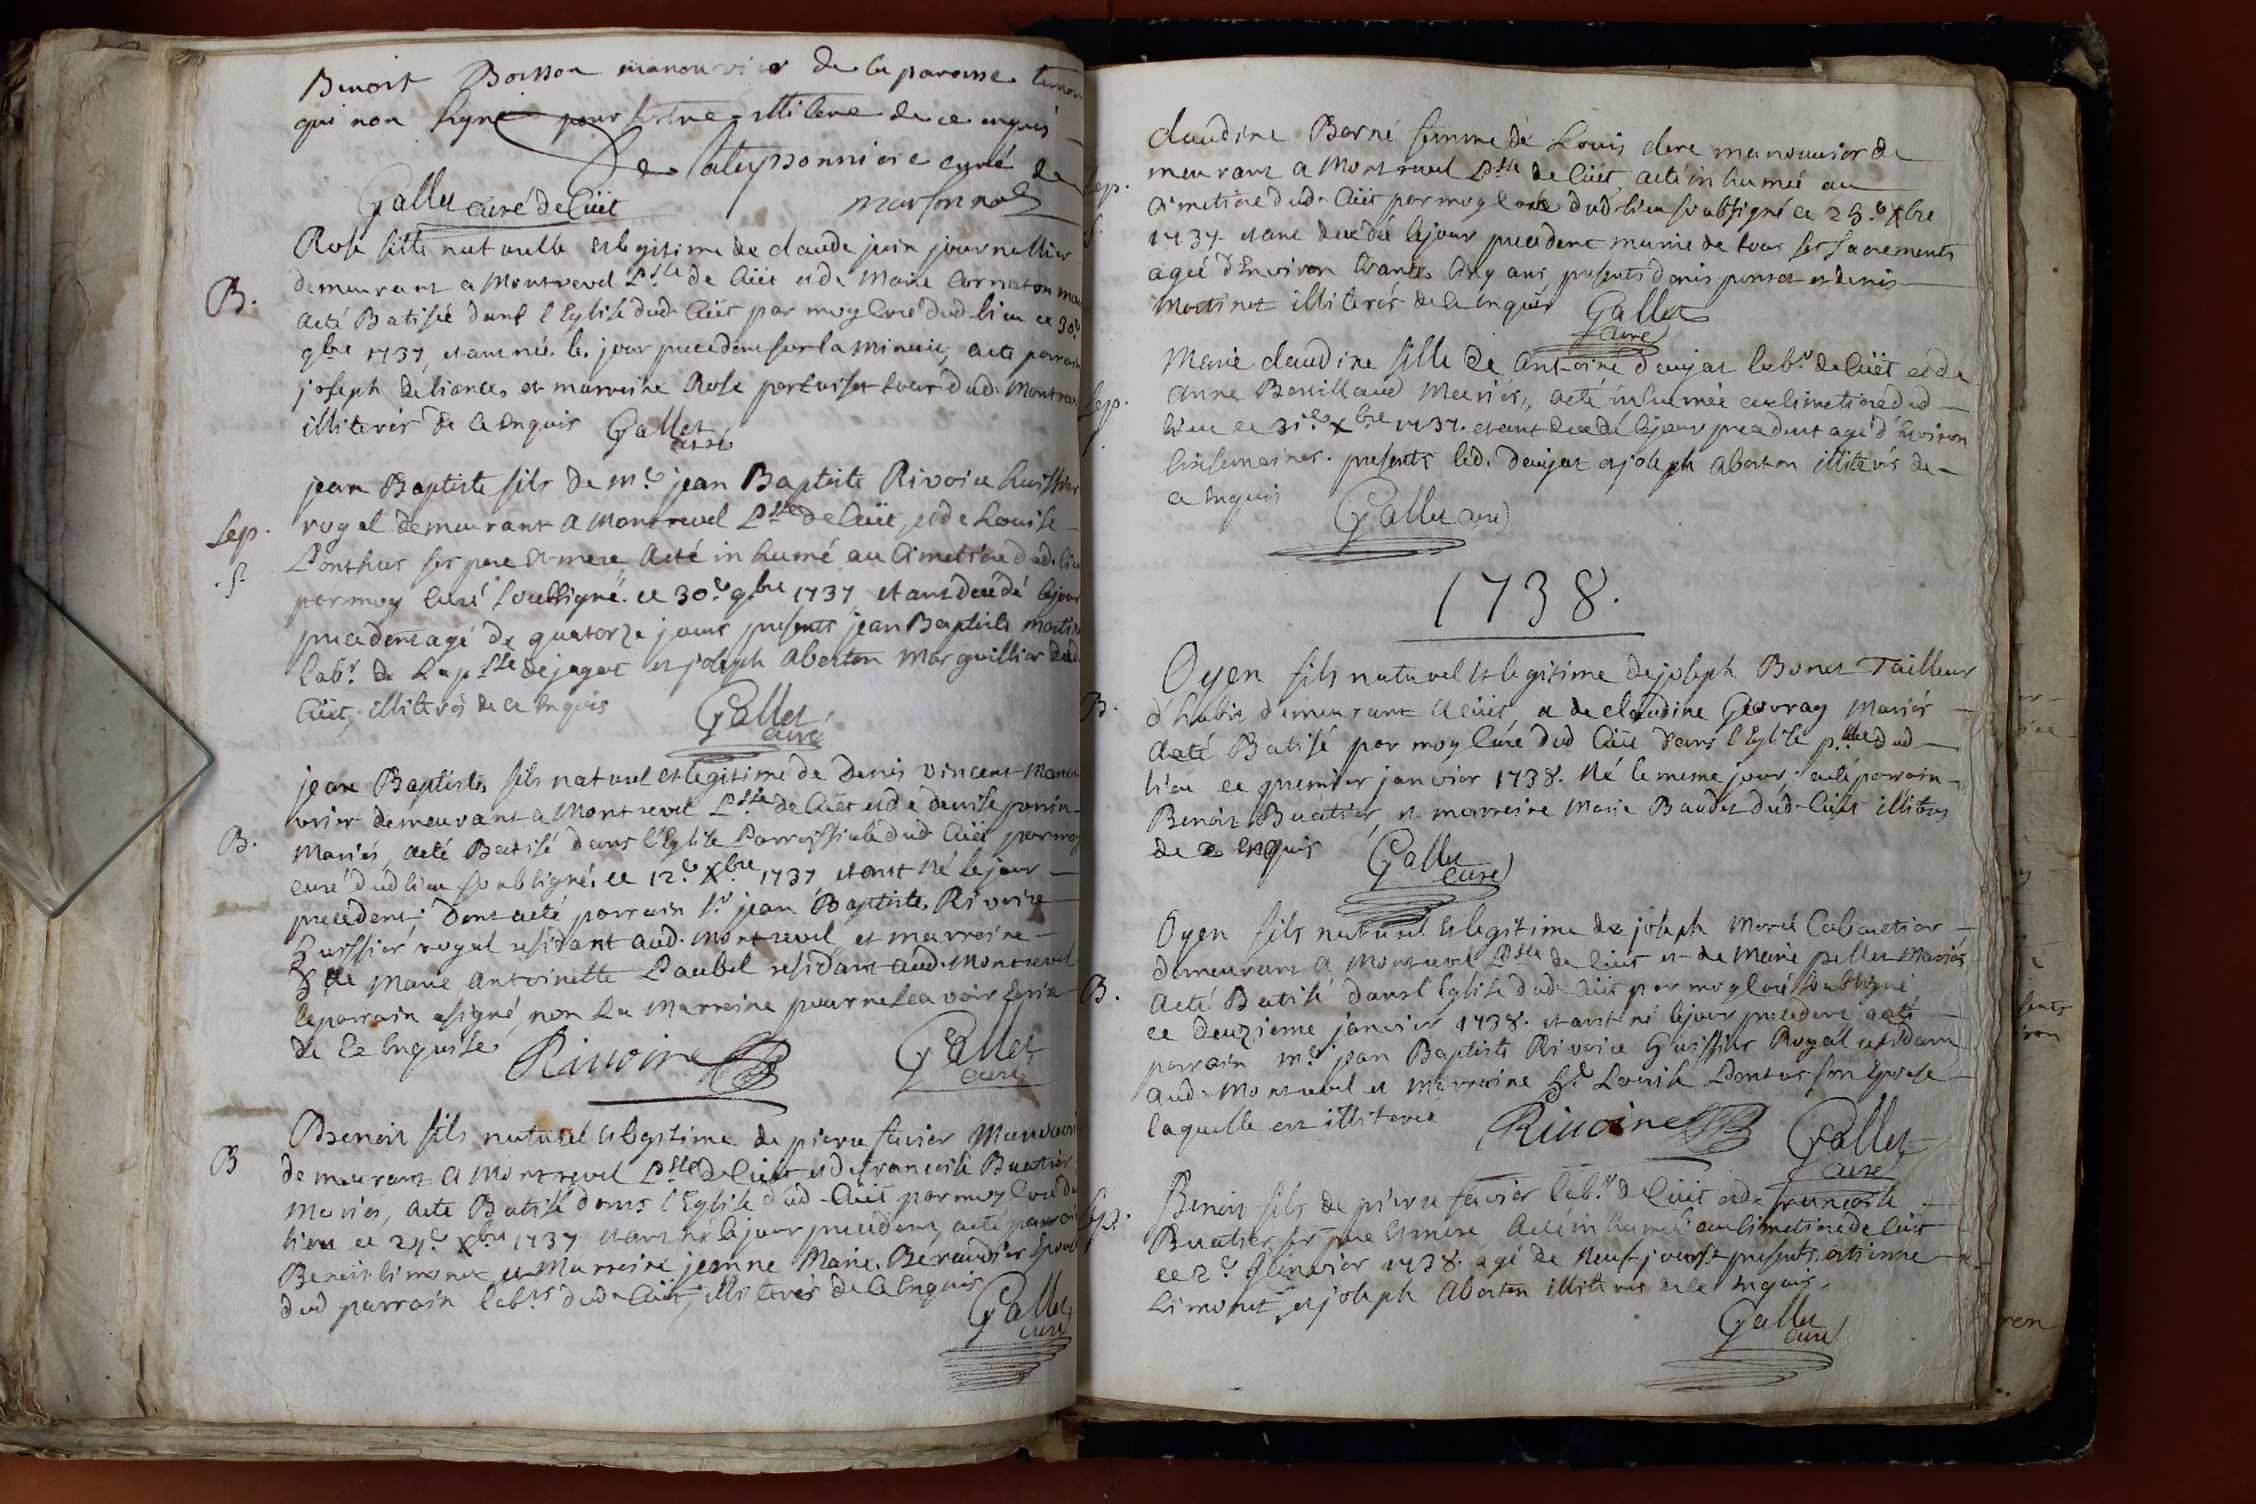 Benoit Boisson manouvrier de la paroisse
qui non signé pour être illiteré de ce enquis
curé de
Gallet curé de Cüet
marsonnas
Rose fille naturelle et legitime de claude juin journallier
demeurant a Montrevel Psse de Cüet et de Marie
B.
aeté Batisée dans l'Eglise dud. Cüet par moy Curé dud. lieu ce 30e
9bre 1737, etant née le jour precedent sur la minuit, aeté parrain
joseph deliance et marreine Rose tous dud. Montrevel
illiterés de ce enquis Gallet
curé
jean Baptiste fils de me jean Baptiste Rivoire huissier
Sep.
royal demeurant a Montrevel Psse de Cüet, et de Louise
Ponthus ses pere et mere aeté inhumé au Cimetiere dud. lieu
S.
par moy Curé soussigné. ce 30e 9bre 1737 etant decedé le jour
precedent agé de quatorze jours presents jean Baptiste
labr. de la psse de jayat et joseph Aberton Marguillier dud.
Cüet, illiterés de ce enquis
Gallet
curé
jean Baptiste fils naturel et legitime de Denis Vincent
vrier demeurant a Montrevel Psse de Cüet et de denise
B.
Mariés, aeté Batisé dans l'Eglise Parroissiale dud. Cüet par moy
curé dud lieu soubsigné. ce 12e Xbre 1737 etant Né le jour
precedent; dont aeté parrain sr jean Baptiste Rivoire
huissier royal residant aud. Montrevel, et marreine
Marie Antoinette Paubel residant aud. Montrevel
le parrain a signé, non La Marreine pour ne sçavoir
de ce Enquise Rivoire Gallet
curé
Benoit fils naturel et legitime de pierre favier
B
demeurant a Montrevel Psse de Cüet et de francoise Buatier
Mariés, aeté Batisé dans l'Eglise dud. Cüet par moy Curé du
lieu ce Xbre 1737 etant né le jour precedent, aeté parrain
Benoit Limonet et Marreine jeanne Marie Beraudier Epouse
dud parrain labrs dud. Cüet, illiterés de ce enquis
Gallet
curé
claudine Borné femme de Louis clere manouvrier de
meurant a Montrevel Psse de Cüet, aeté inhumée au
Sep.
Cimetiere dud. Cüet par moy Curé dud. lieu soubsigné ce Xbre
S.
1737. etant decedé le jour precedent munie de tous ses sacrements
agée d'Environ trante Cinq ans presents denis et denis
illiterés de ce enquis Gallet
curé
Marie claudine fille de Antoine labr. de Cüet et de
Anne Bouillaud Mariés, aeté inhumée au Cimetiere dud
Sep.
lieu ce 31e Xbre 1737. etant decedé le jour precedent agé d'Environ
semaines. presents led. et joseph Aberton illiterés de
ce enquis Gallet curé
1738.
Oyen fils naturel et legitime de joseph Bonet Tailleur
B.
d'habit demeurant a Cüet, et de claudine Mariés
aeté Batisé par moy Curé dud Cüet dans l'Eglise dud
lieu ce premier janvier 1738. Né le meme jour; aeté parrain
Benoit Buatier, et marreine Marie Baudet dud. Cüet illiterés
de ce enquis Gallet
curé
Oyen fils naturel et legitime de joseph Morel Cabaretier
demeurant a Montrevel Psse de Cüet et de Marie pellet Mariés
B.
aeté Batisé dans l'Eglise dud. Cüet par moy Curé soubsigné
ce deuzieme janvier 1738. etant né le jour precedent aeté
parrain me jean Baptiste Rivoire huissier Royal residant
aud. Montrevel et Marreine Louise Pontus son Epouse
laquelle est illiteree Rivoire Gallet
curé
Benoit fils de pierre favier labr. de Cüet et de francoise
Sep.
Buatier, ses pere et mere, aeté inhumé au Cimetiere de Cüet
ce 2e janvier 1738. agé de Neuf jours presents etienne
Limonet, et joseph Aberton illiterés de ce enquis.
Gallet
curé